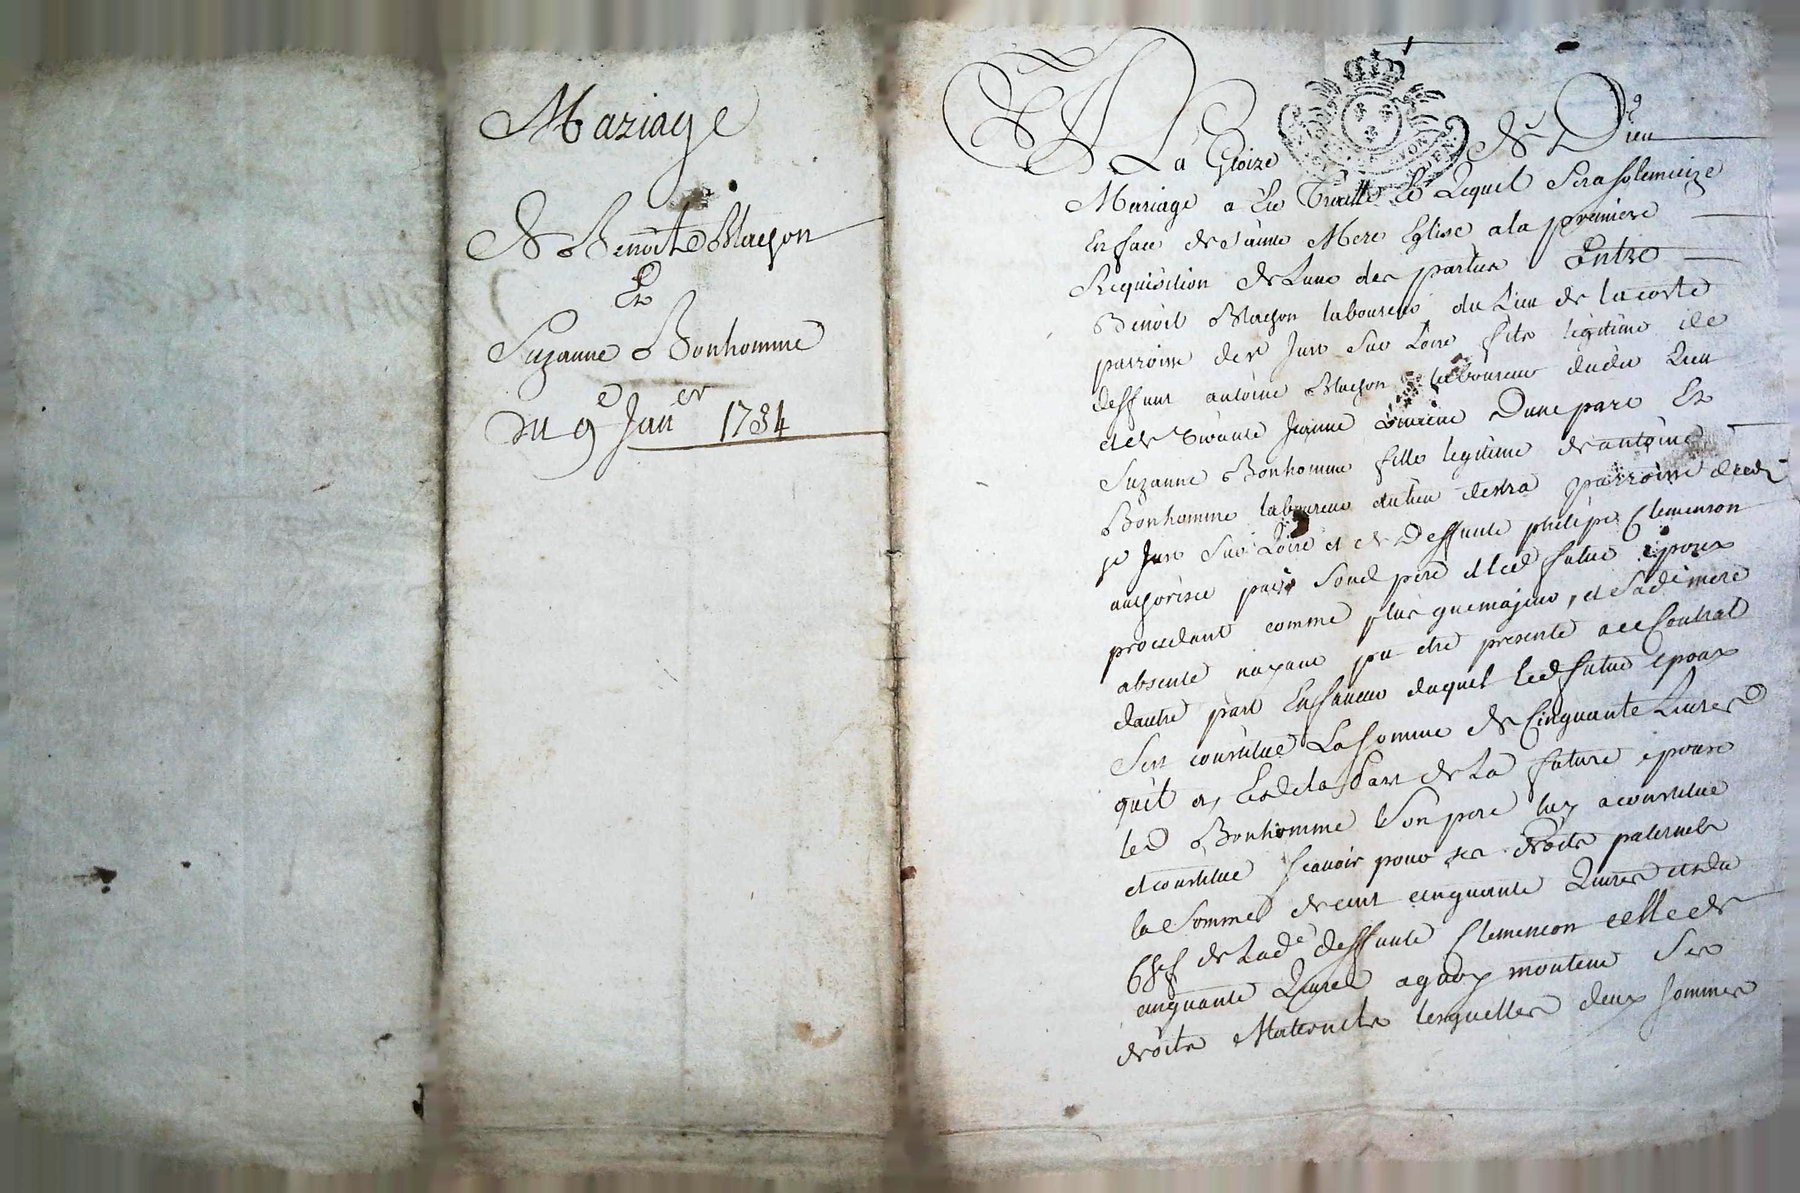 Mariage
De Benoit Maçon
Et
Suzanne Bonhomme
Du 9e Janer 1784
A La Gloire De Dieu
Mariage a été Traitté Lequel sera solemnizé
En face de sainte Mere Eglise a la premiere
Requisition de Lune des parties Entre
Benoit Maçon laboureur du Lieu de lacoste
parroisse de st Just sur Loire fils legitime de
deffunt antoine Maçon laboureur dudit Lieu
et de vivante Jeanne Dune part Et
Suzanne Bonhomme fille legitime de antoine
Bonhomme laboureur du lieu parroisse dedt
st Just sur Loire et de Deffunte philipe Clemenson
authorisée par sond pere et led futur epoux
procedant comme plus que majeur, et sade mere
absente nayant pu etre presente a ce Contrat
dautre part En faveur duquel led futur epoux
sest constitué La somme de Cinquante Livres
quil a, Et de la Part de La future epouse
led Bonhomme son pere luy a constitué
et constitue scavoir pour ses droits paternels
la somme de cent cinquante Livres et du
Chef de Lade deffunte Clemencon celle de
cinquante Livres a quoy montent ses
droits Maternels lesquelles deux sommes